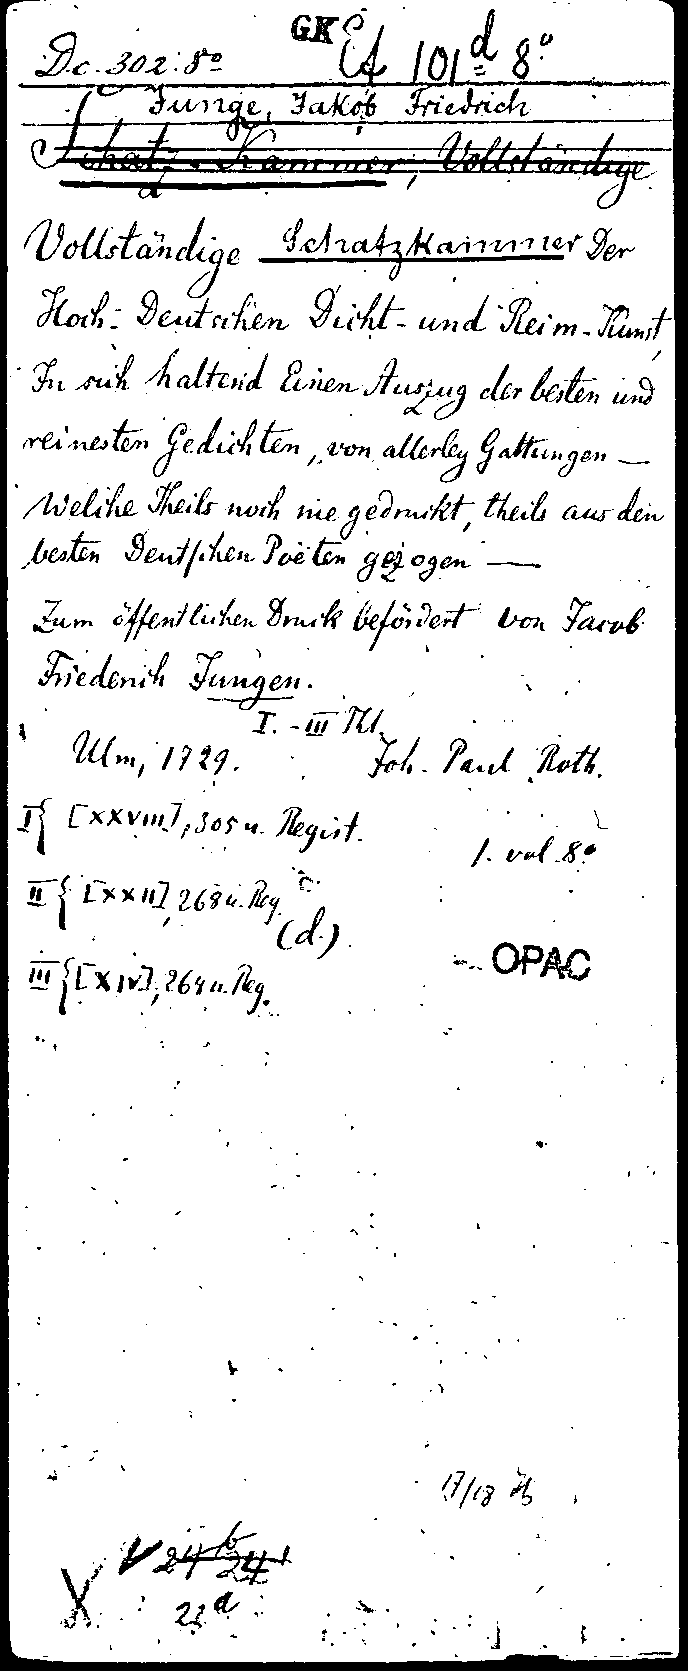 GK
Dc. 302. 8° Et 101 d 8°
Junge, Jakob Friedrich
Schatz-Kammer, Vollständige
Vollständige Schatzkammer Der
Hoch-Deutschen Dicht- und Reim-Kunst,
In sich haltend Einen Auszug der besten und
reinesten Gedichten, von allerley Gattungen —
Welche Theils noch nie gedruckt, theils aus den
besten Deutschen Poëten gezogen —
Zum öffentlichen Druck befördert von Jacob
Friederich Jungen.
I.-III Thl.
Ulm, 1729. Joh. Paul Roth.
I { [XXVIII], 305 u. Regist.
1. vol 8°
II { [XXII], 268 u. Reg.
(d.)
OPAC
III { [XIV], 264 u. Reg.
17/18
24 b 24
22 a